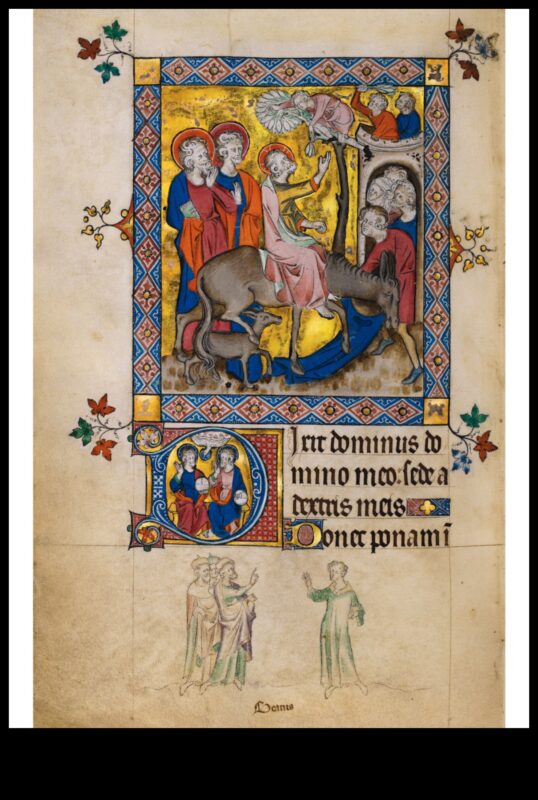 Dixit dominus do
mino meo: sede a
dextris meis
Donec ponam i